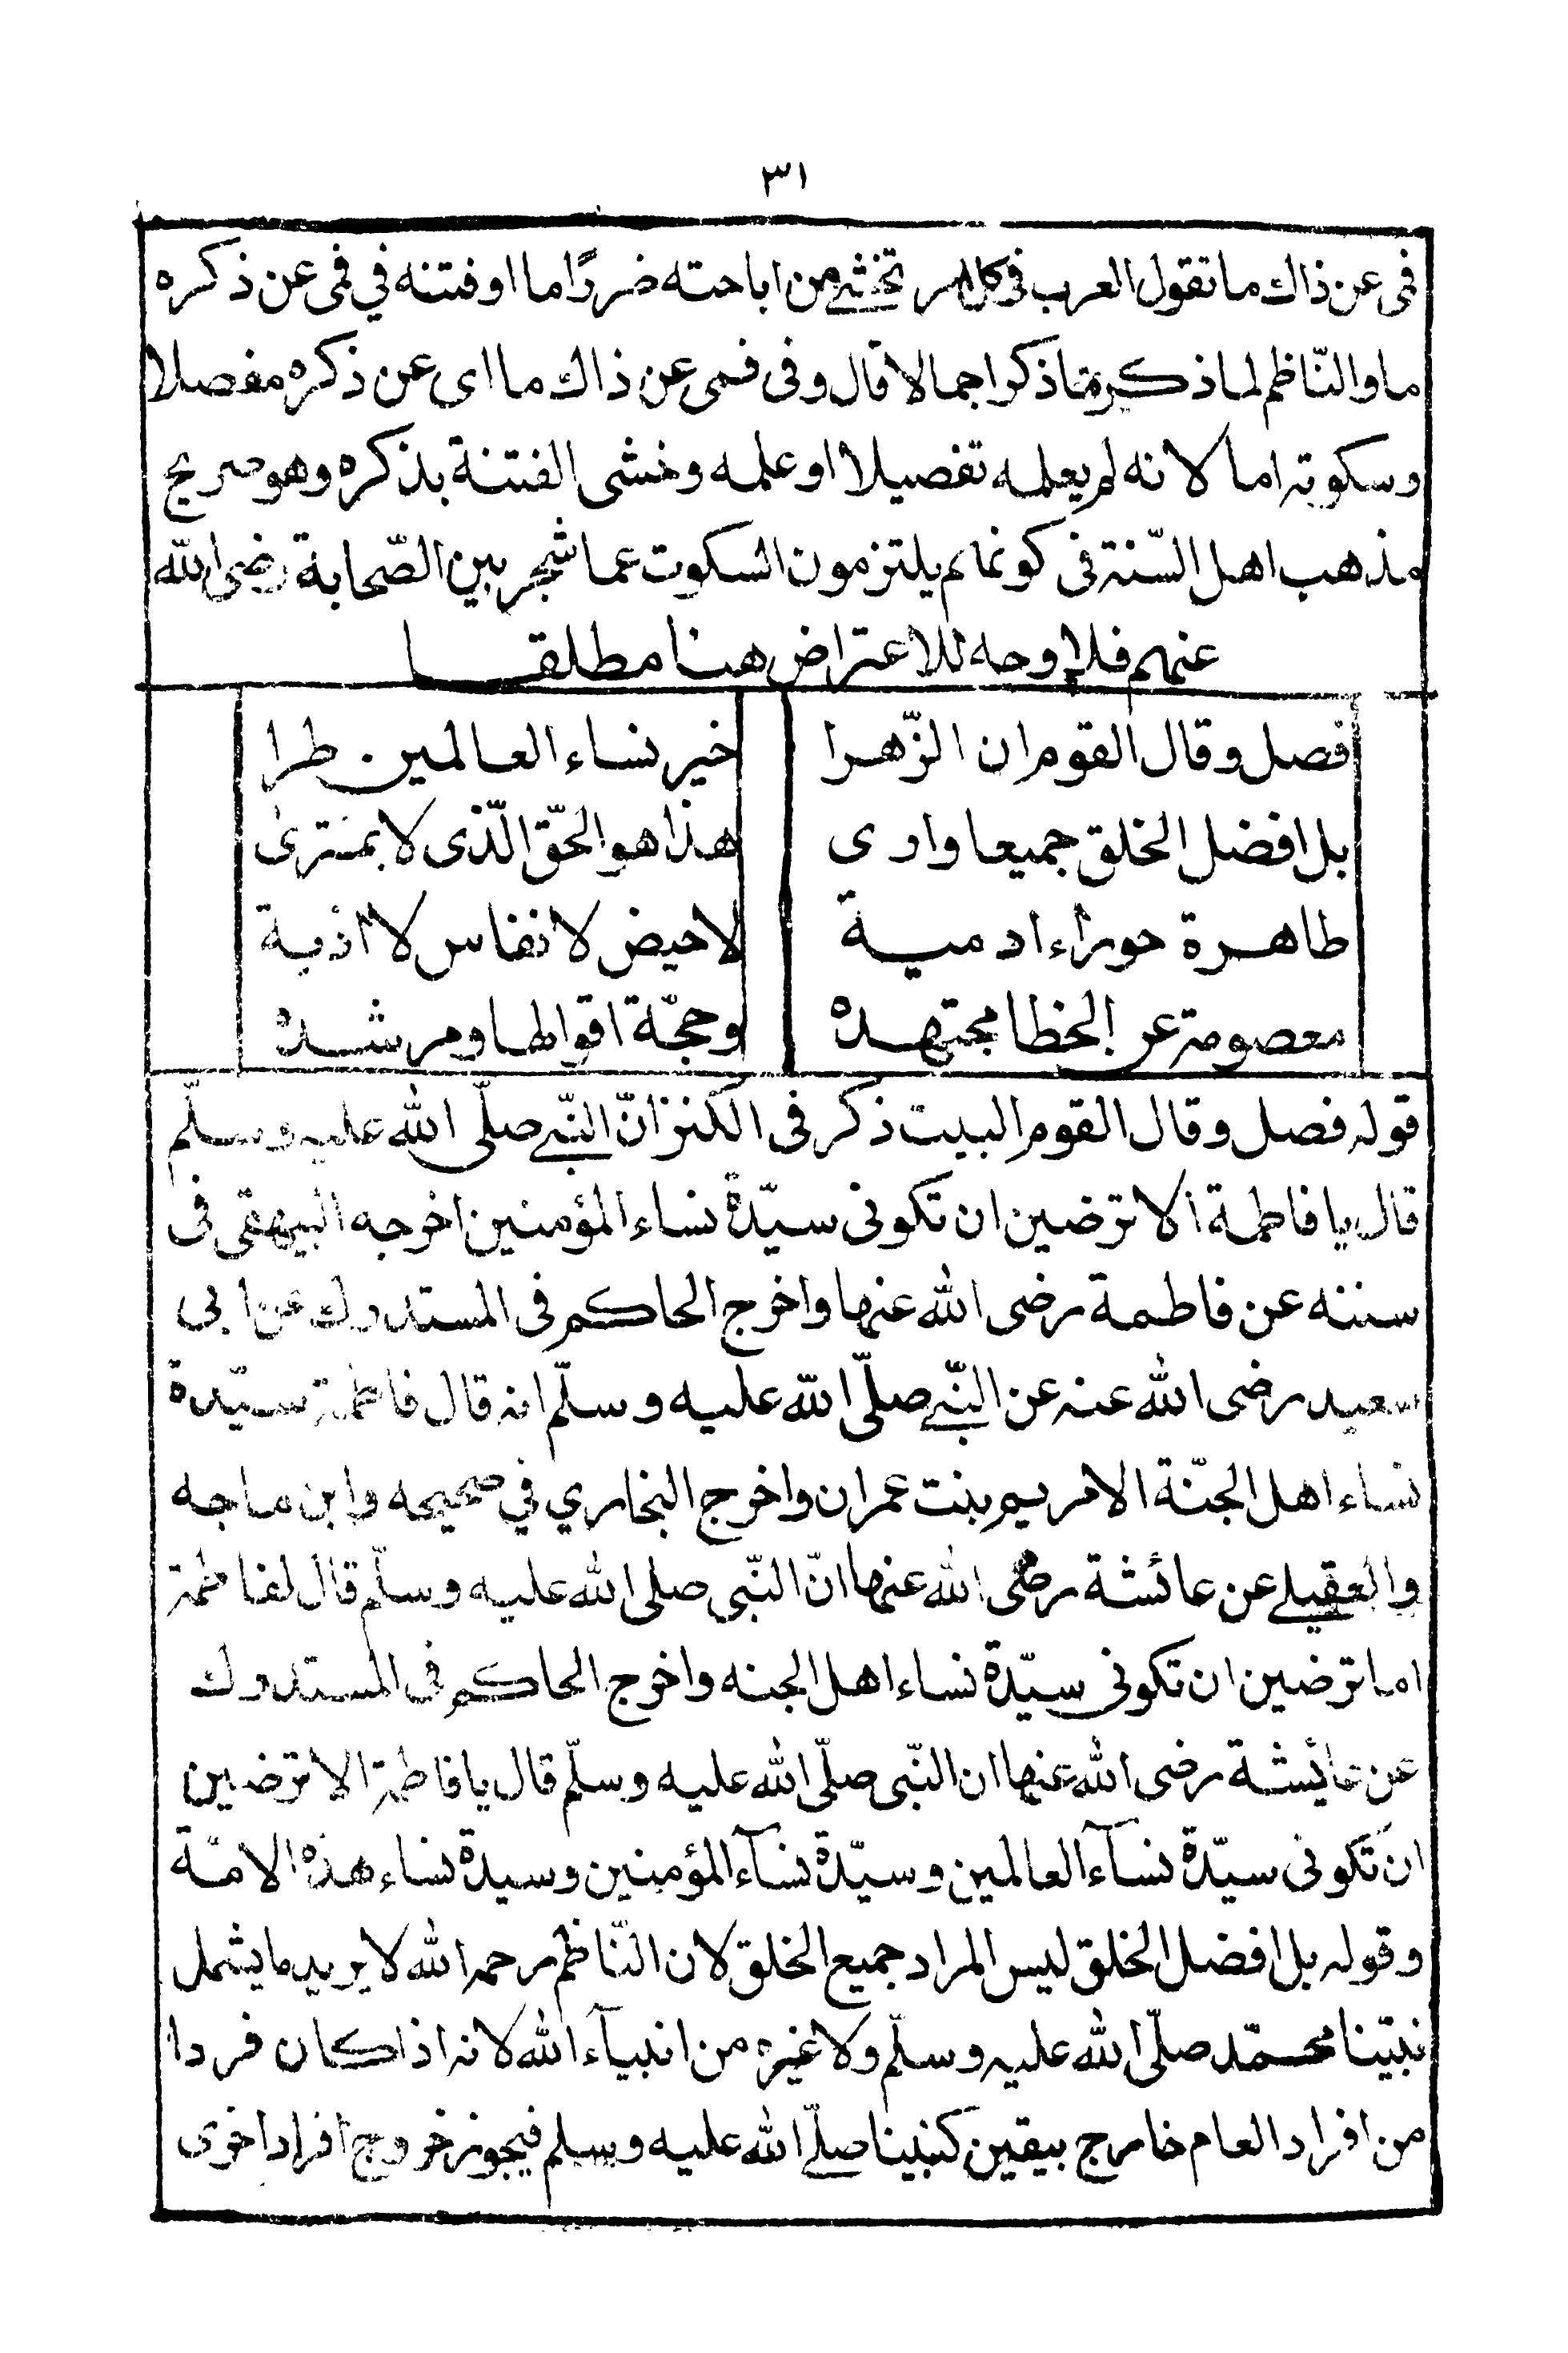 ٣١
فمى عن ذاك ما تقول العرب فى كل امر تخشى من اباحته ضررًا ما او فتنه في فمى عن ذكره
ما والنّاظم لما ذكر هذا ذكرا جمالا قال وفى فمى عن ذاك ما اى عن ذكره مفصلا
وسكوته اما لانه لم يعلمه تفصيلا او علمه وخشى الفتنة بذكره وهو صريح
مذهب اهل السّنة فى كونهم يلتزمون السكوت عما شجر بين الصّحابة رضى الله
عنهم فلا وجه للاعتراض هنا مطلقـــا
فصل وقال القوم ان الزّهرا خير نساء العالمين طرا
بل افضل الخلق جميعا وارى هذا هو الحقّ الّذى لا يمترى
طاهرة حوراء ادمية لا حيض لا نفاس لا اذية
معصومة عن الخطا مجتهده وحجّة اقوالها ومرشده
قوله فصل وقال القوم البيت ذكر فى الكنز انّ النّبى صلّى الله عليه وسلّم
قال يا فاطمة الا ترضين ان تكونى سيّدة نساء المؤمنين اخرجه البيهقى فى
سننه عن فاطمة رضى الله عنها واخرج الحاكم فى المستدرك عن ابى
سعيد رضى الله عنه عن النّبى صلّى الله عليه وسلّم انه قال فاطمة سيّدة
نساء اهل الجنّة الا مريم بنت عمران واخرج البخاري في صحيحه وابن ماجه
والعقيلى عن عائشة رضى الله عنها انّ النّبى صلى الله عليه وسلّم قال لفاطمة
اما ترضين ان تكونى سيّدة نساء اهل الجنه واخرج الحاكم فى المستدرك
عن عائيشة رضى الله عنها ان النّبى صلّى الله عليه وسلّم قال يا فاطمة الا ترضين
ان تكونى سيّدة نسآء العالمين وسيّدة نسآء المؤمنين وسيدة نساء هذه الامّة
وقوله بل افضل الخلق ليس المراد جميع الخلق لان النّاظم رحمه الله لا يريد ما يشمل
نبيّنا محمّد صلّى الله عليه وسلّم ولا غيره من انبيآء الله لانه اذا كان فردا
من افراد العام خارج بيقين كنبينا صلّى الله عليه وسلم فيجوز خروج افراد اخرى